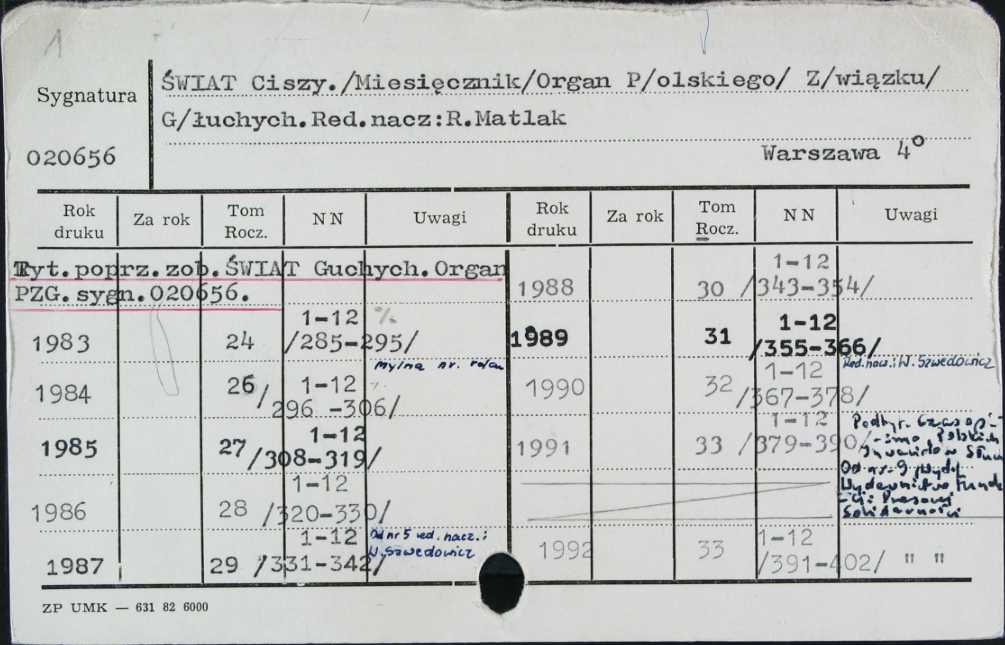 1
Sygnatura
020656
ŚWIAT Ciszy./Miesięcznik/Organ P/olskiego/ Z/wiązku/
G/łuchych.Red.nacz:R.Matlak
Warszawa 4º
Rok druku Za rok Tom Rocz. NN Uwagi Rok druku Za rok Tom Rocz. NN Uwagi
Tyt.poprz.zob.ŚWIAT Guchych.Organ
PZG.sygn.020656.
1983 24 1-12 /285-295/
mylna nr.
1984 26/ 1-12 296 -306/
1985 27 1-12 /308-319/
1986 28 1-12 /320-330/
1987 29 1-12 /331-342/ Od nr 5 red. nacz.: W. Szwedowicz
1988 30 1-12 /343-354/
1989 31 1-12 /355-366/
Red. nacz.: W. Szwedowicz
1990 32 1-12 /367-378/
1991 33 1-12 /379-390/
Podtyt. Czasopi-
-smo Polskich
Inwalidów Słuchu
Od nr. 9 Wyd.
Wydawnictw Fund
Prasowej
Solidarności
1992 33 1-12 /391-402/ " "
ZP UMK — 631 82 6000